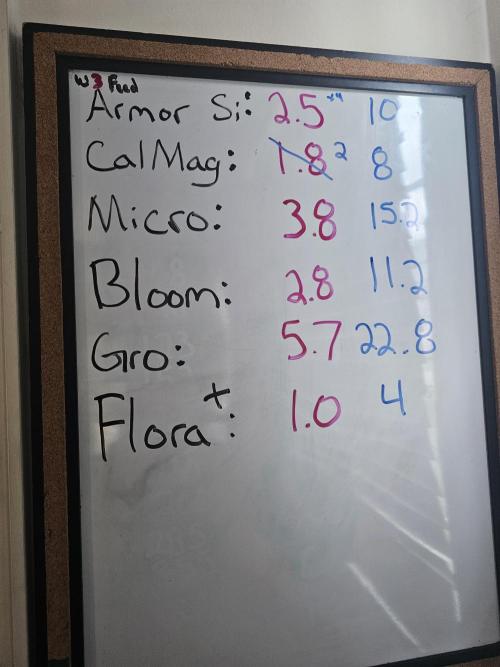 W3 Feed
Armor Si: 2.5 x4 10
CalMag: 1.8 2 8
Micro: 3.8 15.2
Bloom: 2.8 11.2
Gro: 5.7 22.8
Flora+: 1.0 4